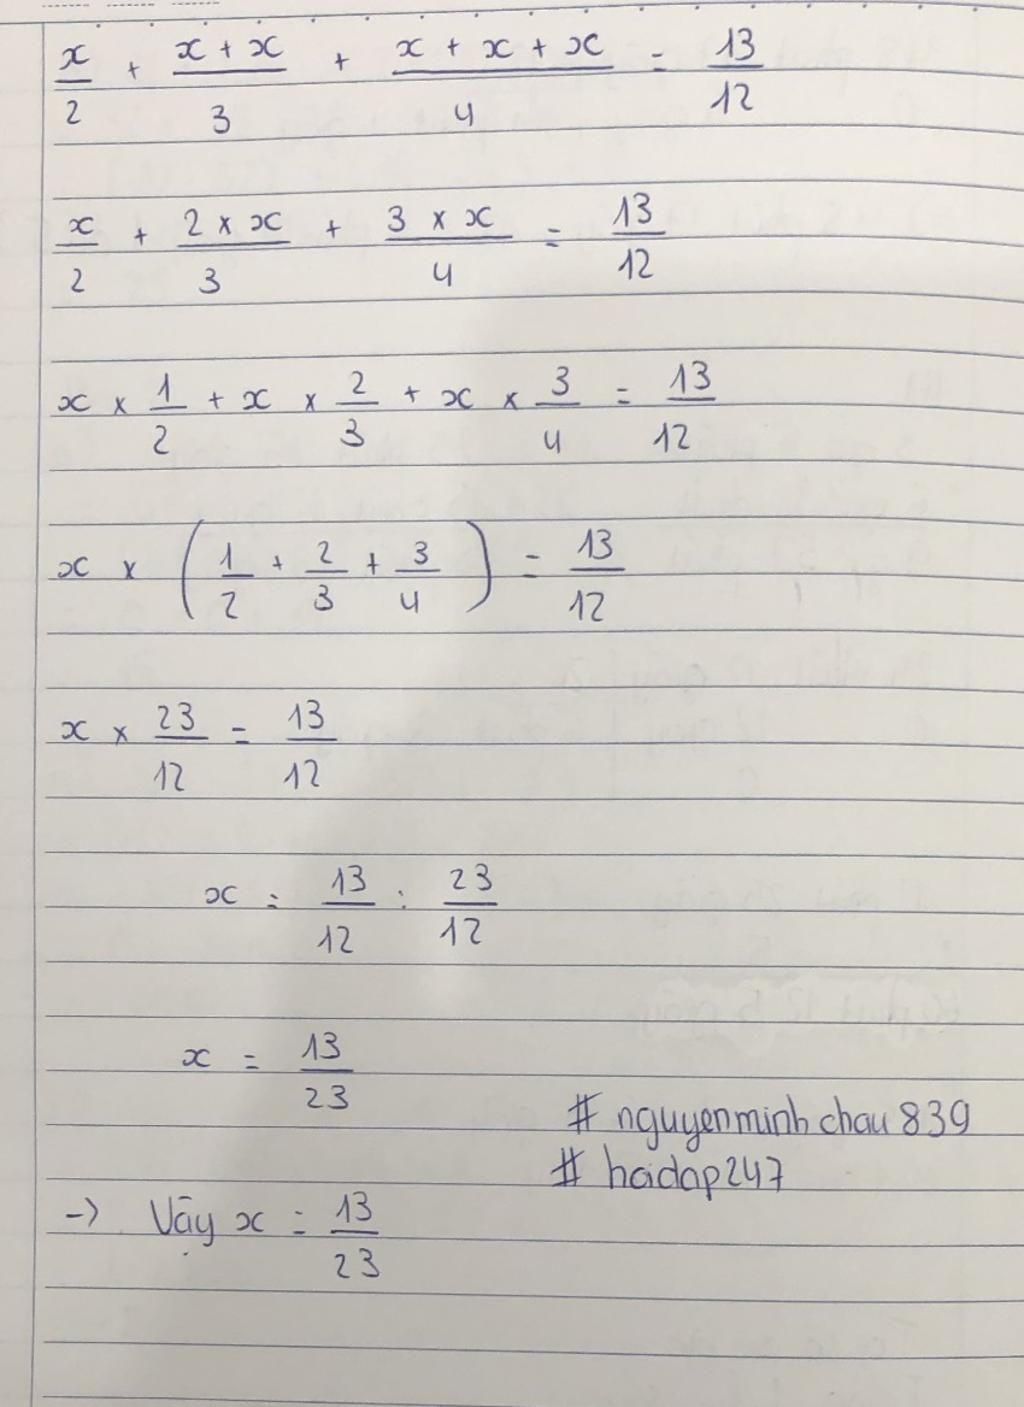 x/2 + (x + x)/3 + (x + x + x)/4 = 13/12
x/2 + (2 × x)/3 + (3 × x)/4 = 13/12
x × 1/2 + x × 2/3 + x × 3/4 = 13/12
x × (1/2 + 2/3 + 3/4) = 13/12
x × 23/12 = 13/12
x = 13/12 : 23/12
x = 13/23
# nguyenminh chau 839
# hoidap247
-> Vậy x = 13/23